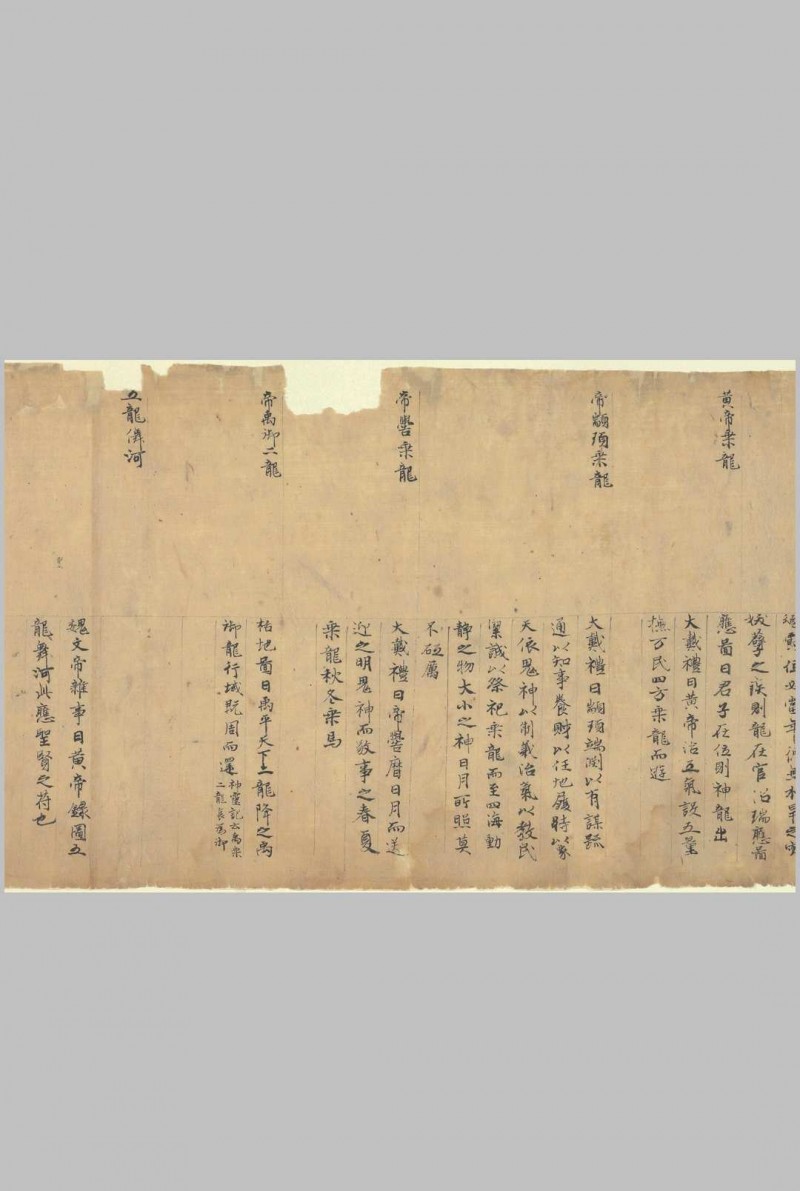 妖孽之誤則龍在官沼瑞應啚
應啚曰君子在位則神龍出
黃帝乗龍
大戴禮曰黃帝治五氣設五量
撫万民四方乗龍而遊
帝顓頊乗龍
大戴禮曰顓頊端渕以有謀䟽
通以知事養財以任地履時以象
天依鬼神以制義治氣以教民
潔誠以祭祀乗龍而至四海動
静之物大小之神日月所照莫
不砥属
帝嚳乗龍
大戴禮曰帝嚳曆日月而送
迎之明鬼神而敬事之春夏
乗龍秋冬乗馬
帝禹御二龍
栝地啚曰禹平天下二龍降之禹
御龍行域既周而還神靈記云禹乗
二龍長為御
五龍儛河
魏文帝雜事曰黃帝錄圖五
龍舞河此應聖賢之苻也